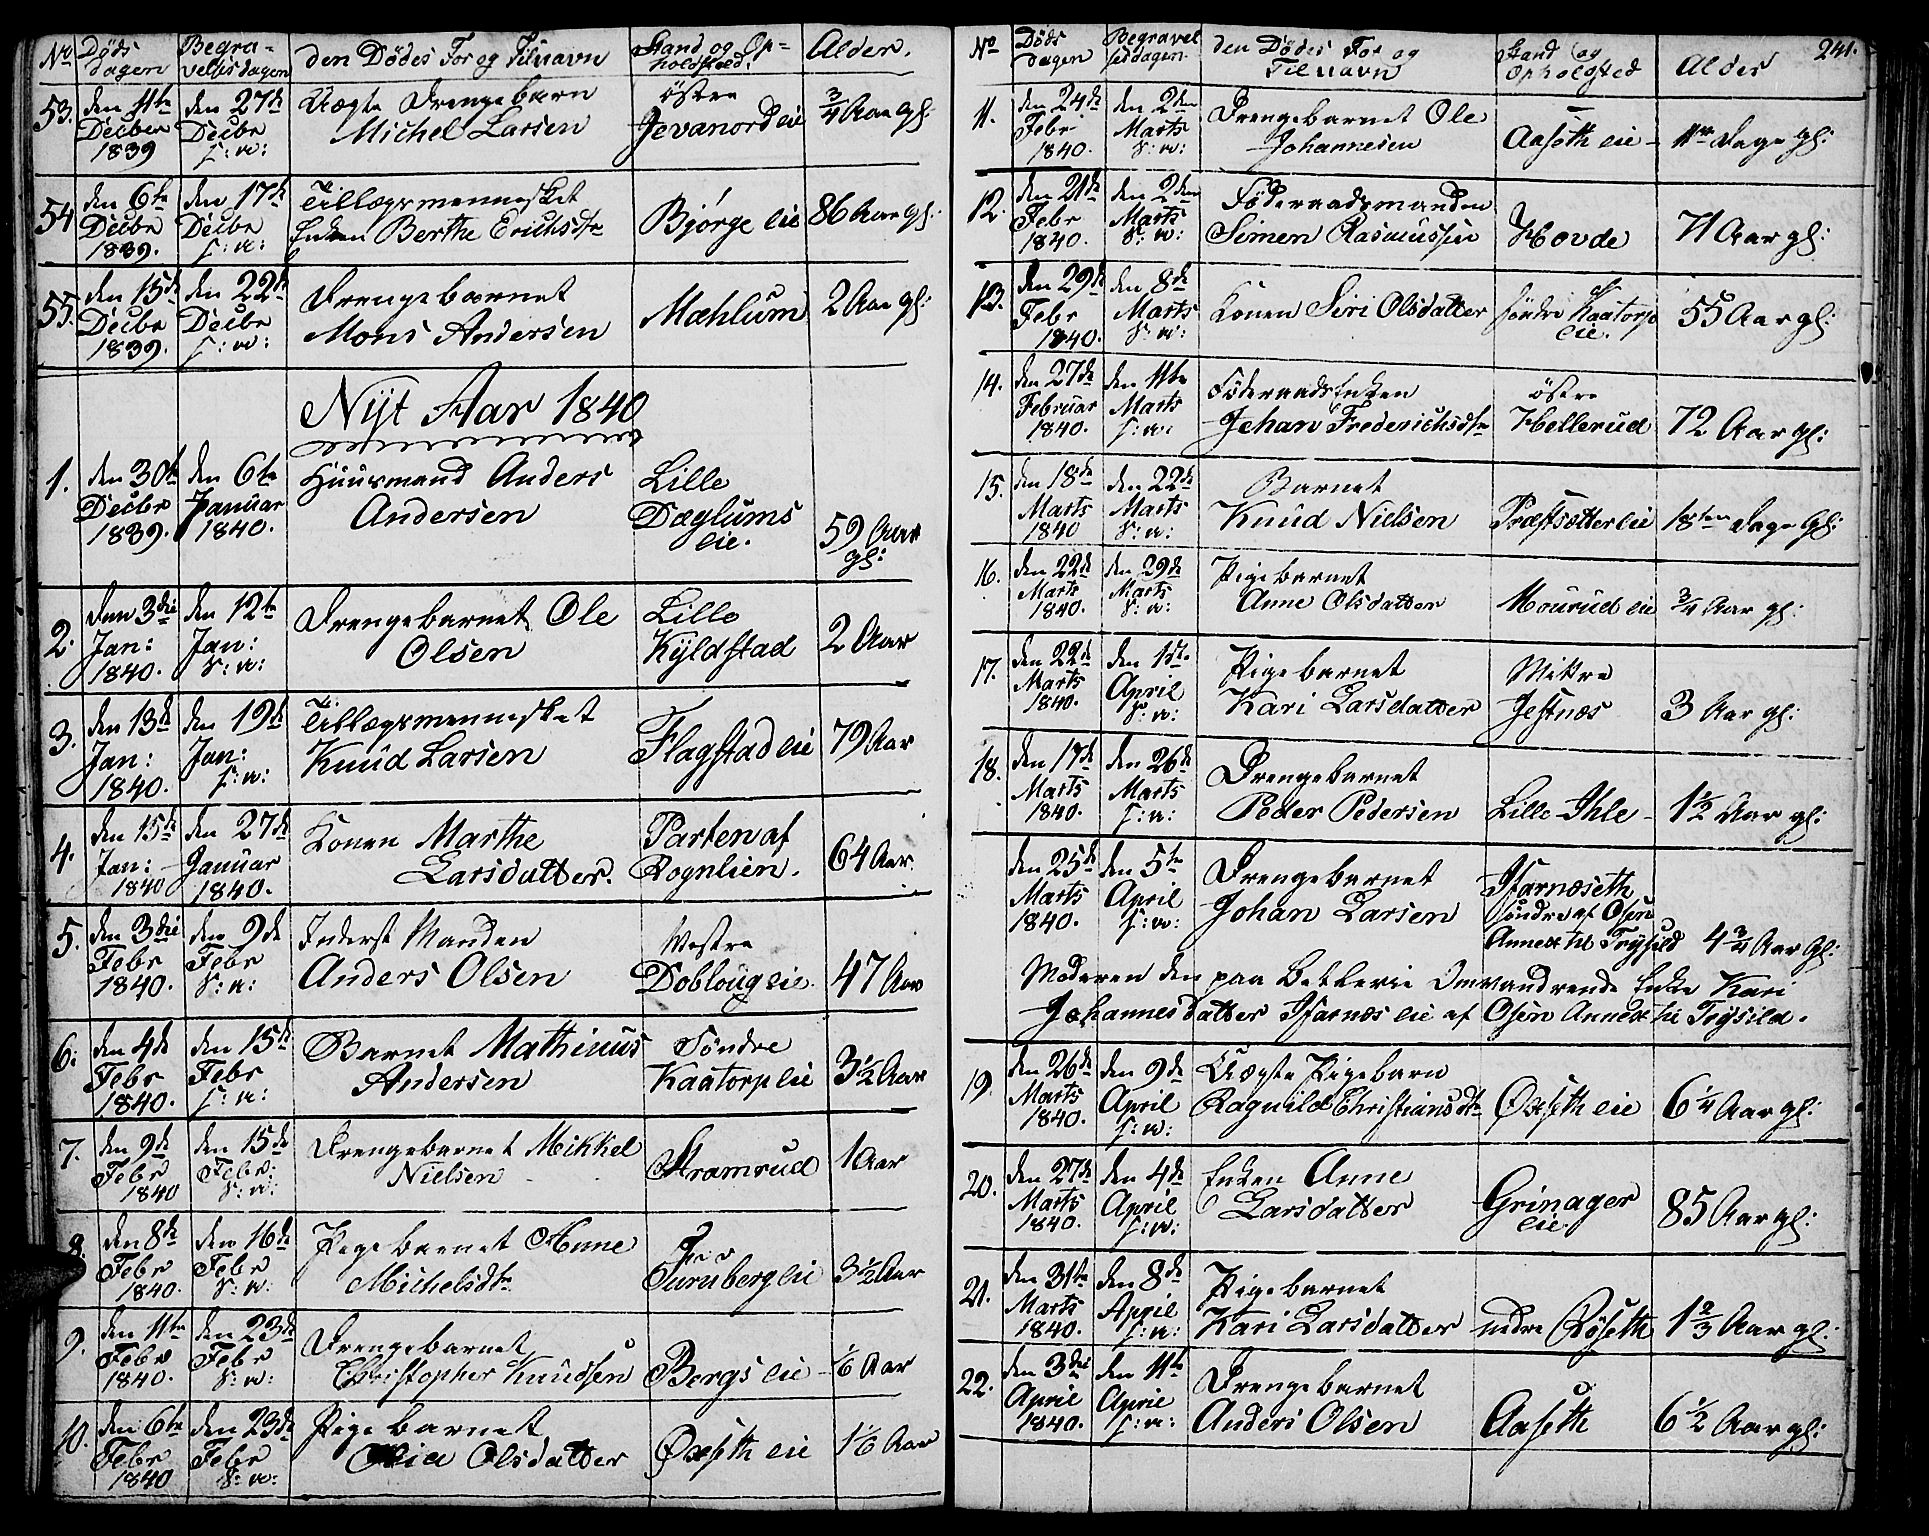 No Døds dagen Begravelsesdagen den Dødes For og Tilnavn Stand og Opholdsted. Alder.
53. den 11te Decbr 1839 den 27de Decbr s: a: Uægte Drengebarn Michel Larsen østre Jevanord eie 3/4 Aar gl:
54 den 6te Decbr 1839. den 17de Decbr s: a: Tillægsmennesket Enken Berthe Erichsdtr Bjørge eie 86 Aar gl:
55. den 15de Decbr 1839. den 22de Decbr s: a: Drengebarnet Mons Andersen Mæhlum 2 Aar gl:
Nyt Aar 1840
1. den 30te Decbr 1839. den 6te Januar 1840. Huusmand Anders Andersen Lille Dæglums eie. 59 Aar gl:
2. den 3die Jan: 1840. den 12te Jan: s: a: Drengebarnet Ole Olsen Lille Kyldstad 2 Aar
3. den 13de Jan: 1840. den 19de Jan: s: a: Tillægsmennesket Knud Larsen Flagstad eie 79 Aar
4. den 15de Jan: 1840 den 27de Januar 1840. Konen Marthe Larsdatter. Parten af Rognlien. 64 Aar
5. den 3die Febr 1840. den 9de Febr s: a: Inderst Manden Anders Olsen Vestre Dobloug eie. 47 Aar
6. den 4de Febr 1840. den 15de Febr s: a: Barnet Mathinus Andersen Søndre Kaatorp eie 3 1/2 Aar
7. den 9de Febr 1840 den 15de Febr: s: a: Drengebarnet Mikkel Nielsen Stramrud 1 Aar
8. den 8de Febr 1840. den 16de Febr s: a: Pigebarnet Anne Michelsdtr Furuberg eie 3 1/2 Aar
9. den 11te Febr 1840. den 23de Febr s: a: Drengebarnet Christopher Knudsen Bergs eie 1/6 Aar
10. den 6te Febr 1840 den 23de Febr s: a: Pigebarnet Olia Olsdatter Øxseth eie 1 1/6 Aar
241.
No Døds dagen Begravelsesdagen den Dødes For og Tilnavn Stand og Opholdsted Alder
11. den 24de Febr 1840. den 2den Marts s: a: Drengebarnet Ole Johannesen Aaseth eie 11ve Dage gl:
12. den 21de Febr 1840. den 2den Marts s: a: Føderaadsmanden Simen Rasmussen Hovde 71 Aar gl:
13. den 29de Febr 1840. den 8de Marts s: a: Konen Siri Olsdatter søndre Kaatorp eie. 55 Aar gl:
14. den 27de Februar 1840. den 11te Marts s: a: Føderaads Enken Jehan Frederichsdtr østre Hellerud 72 Aar gl:
15. den 18de Marts 1840 den 22de Marts s: a: Barnet Knud Nielsen Præstsætter eie 18ten Dage gl:
16. den 22de Marts 1840. den 29de Marts s: a: Pigebarnet Anne Olsdatter Mourud eie 3/4 Aar gl:
17. den 22de Marts 1840. den 1ste April s: a: Pigebarnet Kari Larsdatter Mittre Jestnæs 3 Aar gl:
18. den 17de Marts 1840. den 26de Marts s: a: Drengebarnet Peder Pedersen Lille-Ihle 1 1/2 Aar gl:
den 25de Marts 1840. den 5te April s: a: Drengebarnet Johan Larsen søndre af Osen Annex til Trysild 4 3/4 Aar gl:
Moderen den paa Betlerie Omvandrende Enke Kari
Johannesdatter eie af Osen Annex til Trysild.
19. den 26de Marts 1840. den 9de April s: a: Uægte Pigebarn Ragnild Christiansdtr Øxseth eie 6 1/4 Aar gl:
20. den 27de Marts 1840. den 4de April s: a: Enken Anne Larsdatter Grinager eie. 85 Aar gl:
21. den 31te Marts 1840. den 8de April s: a: Pigebarnet Kari Larsdatter nedre Røseth 1 2/3 Aar gl:
22. den 3die April 1840. den 11te April s: a: Drengebarnet Anders Olsen Aaseth 6 1/2 Aar gl: